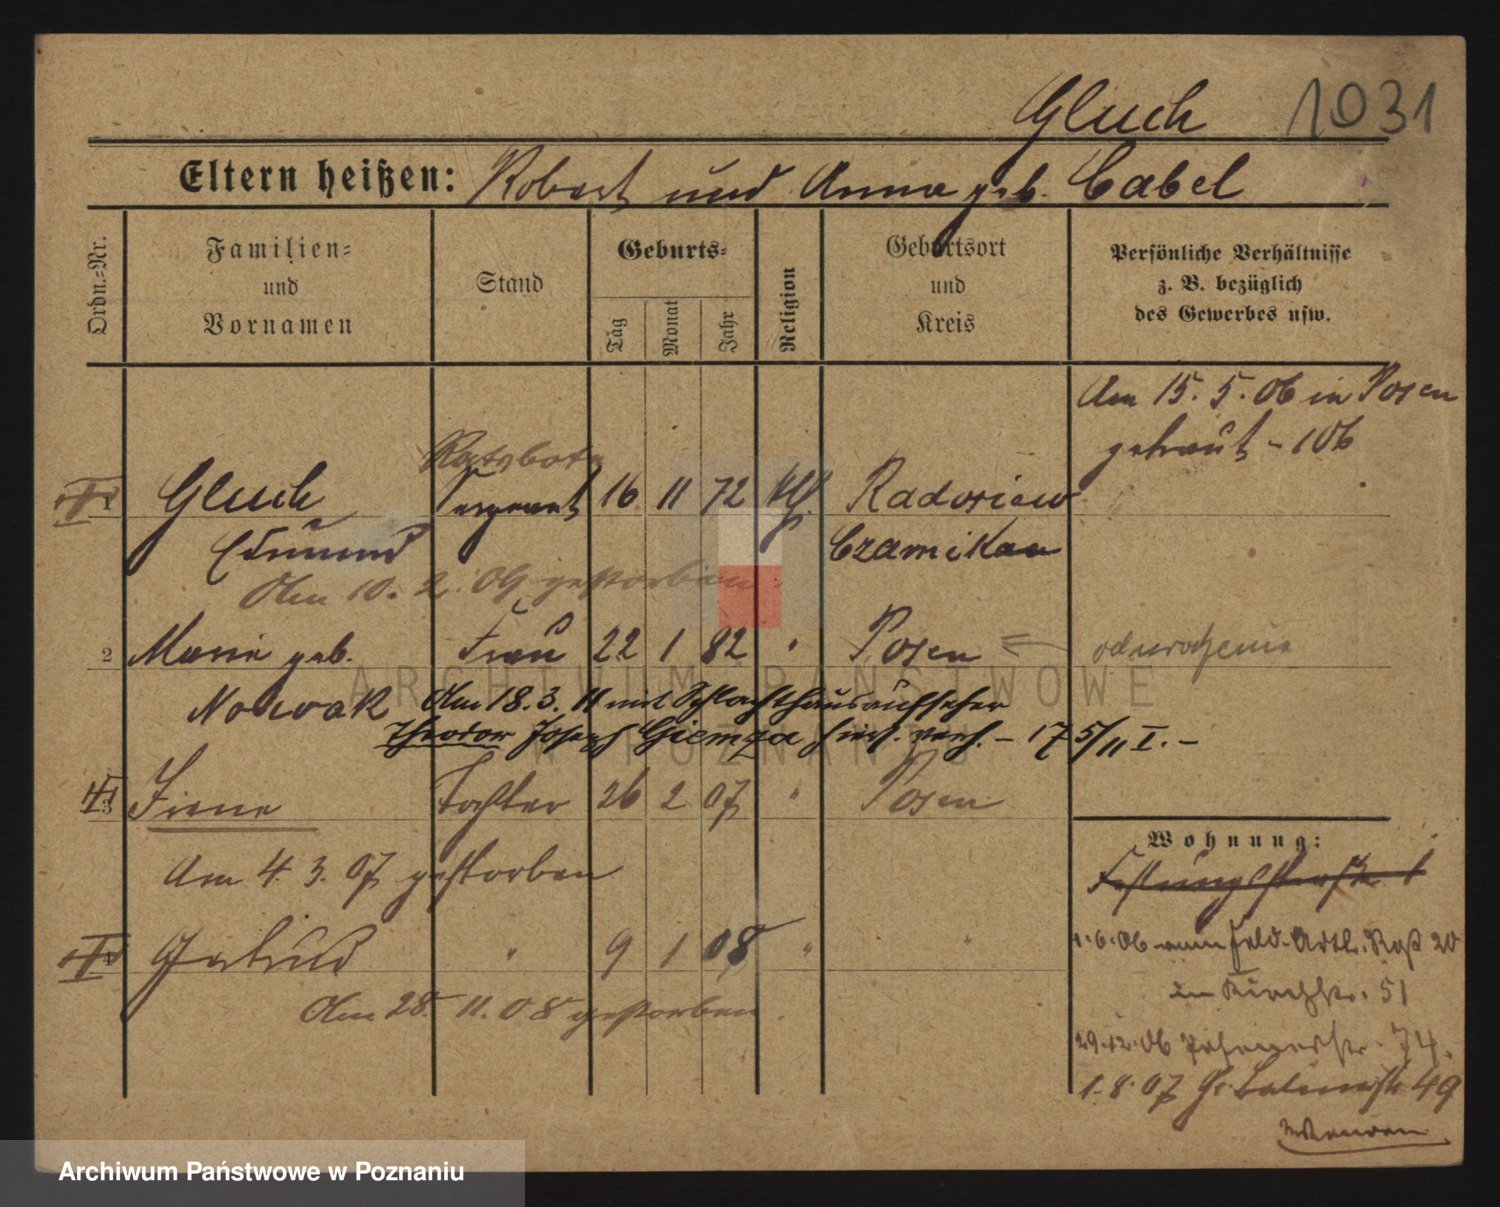 Gluch 1031
Eltern heißen: Robert und Anna geb. Cabel
Ordn.-Nr.
Familien-
und
Vornamen
Stand
Geburts-
Tag
Monat
Jahr
Religion
Geburtsort
und
Kreis
Persönliche Verhältnisse
z. B. bezüglich
des Gewerbes usw.
Am 15. 5. 06 in Posen
getraut - 106
Ratsbote
1 Gluch Sergeant 16 11 72 kth. Radosiew
Edmund Czarnikau
Am 10. 2. 09 gestorben.
2 Marie geb. Frau 22 1 82 " Posen
Nowak Am 18. 3. 11 mit Schlachthausaufseher
Theodor Joseph Giemza hier. verh. - 175/11 I. -
3 Irene Tochter 26 2 07 " Posen
Am 4. 3. 07 gestorben
4 Gertrud " 9 1 08 " "
Am 28. 11. 08 gestorben.
Wohnung:
Festungsstraße 1
1.6.06 zum Feld-Artl. Rgt 20
in Kirchstr. 51
29.12.06 Posenerstr. 74.
1.8.07 Gr. Berlinerstr. 49
ARCHIWUM PAŃSTWOWE
W POZNANIU
Archiwum Państwowe w Poznaniu